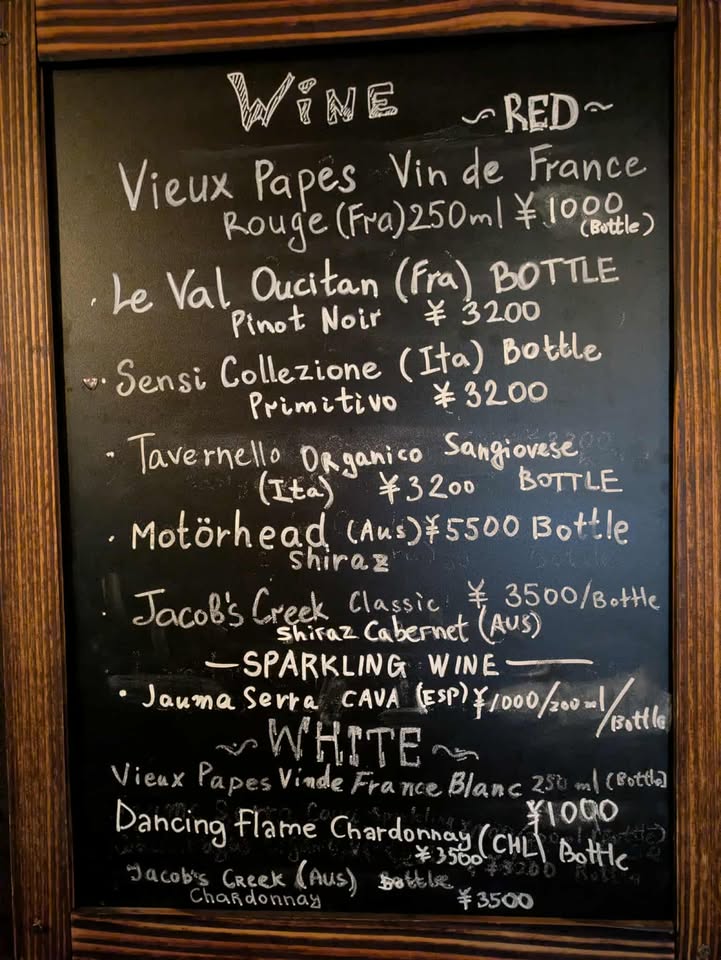 WINE
~RED~
Vieux Papes Vin de France
Rouge (Fra) 250ml ¥1000
(Bottle)
Le Val Oucitan (Fra) BOTTLE
Pinot Noir ¥3200
Sensi Collezione (Ita) Bottle
Primitivo ¥3200
Tavernello Organico Sangiovese
(Ita) ¥3200 BOTTLE
Motörhead (Aus) ¥5500 Bottle
Shiraz
Jacob's Creek Classic ¥3500/Bottle
Shiraz Cabernet (AUS)
—SPARKLING WINE—
• Jauma Serra CAVA (ESP) ¥1000/200ml/Bottle
~WHITE~
Vieux Papes Vin de France Blanc 250ml (Bottle)
¥1000
Dancing Flame Chardonnay (CHL) Bottle
¥3500
Jacob's Creek (AUS) Bottle
Chardonnay ¥3500